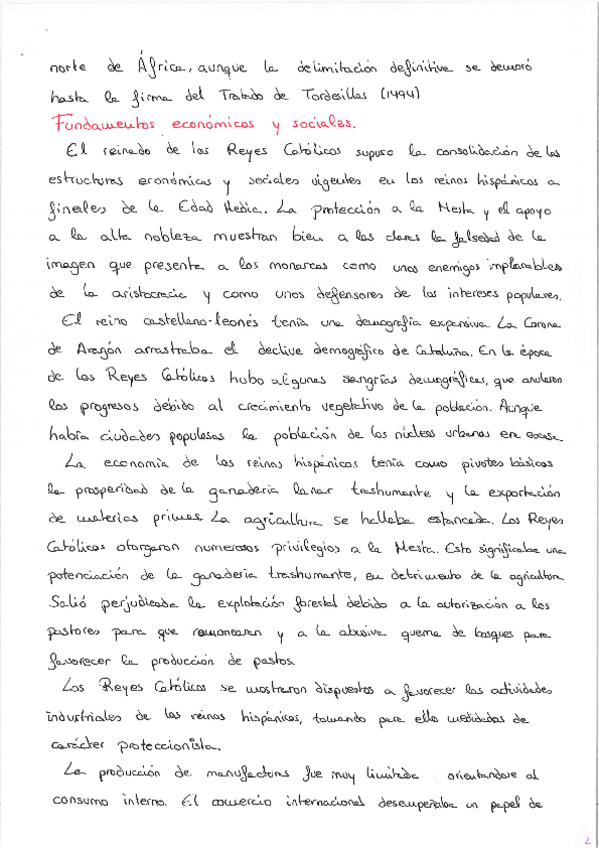 norte de África, aunque la delimitación definitiva se demoró
hasta la firma del Tratado de Tordesillas (1494)
Fundamentos económicos y sociales.
El reinado de los Reyes Católicos supuso la consolidación de las
estructuras económicas y sociales vigentes en los reinos hispánicos a
finales de la Edad Media. La protección a la Mesta y el apoyo
a la alta nobleza muestran bien a las claras la falsedad de la
imagen que presenta a los monarcas como unos enemigos implacables
de la aristocracia y como unos defensores de los intereses populares.
El reino castellano-leonés tenía una demografía expansiva. La Corona
de Aragón arrastraba el declive demográfico de Cataluña. En la época
de los Reyes Católicos hubo algunas sangrías demográficas, que anularon
los progresos debido al crecimiento vegetativo de la población. Aunque
había ciudades populosas la población de los núcleos urbanos era escasa.
La economía de los reinos hispánicos tenía como pivotes básicos
la prosperidad de la ganadería lanar trashumante y la exportación
de materias primas. La agricultura se hallaba estancada. Los Reyes
Católicos otorgaron numerosos privilegios a la Mesta. Esto significaba una
potenciación de la ganadería trashumante, en detrimento de la agricultura.
Salió perjudicada la explotación forestal debido a la autorización a los
pastores para que ramonearan y a la abusiva quema de bosques para
favorecer la producción de pastos.
Los Reyes Católicos se mostraron dispuestos a favorecer las actividades
industriales de los reinos hispánicos, tomando para ello medidas de
carácter proteccionista.
La producción de manufacturas fue muy limitada orientandose al
consumo interno. El comercio internacional desempeñaba un papel de
2